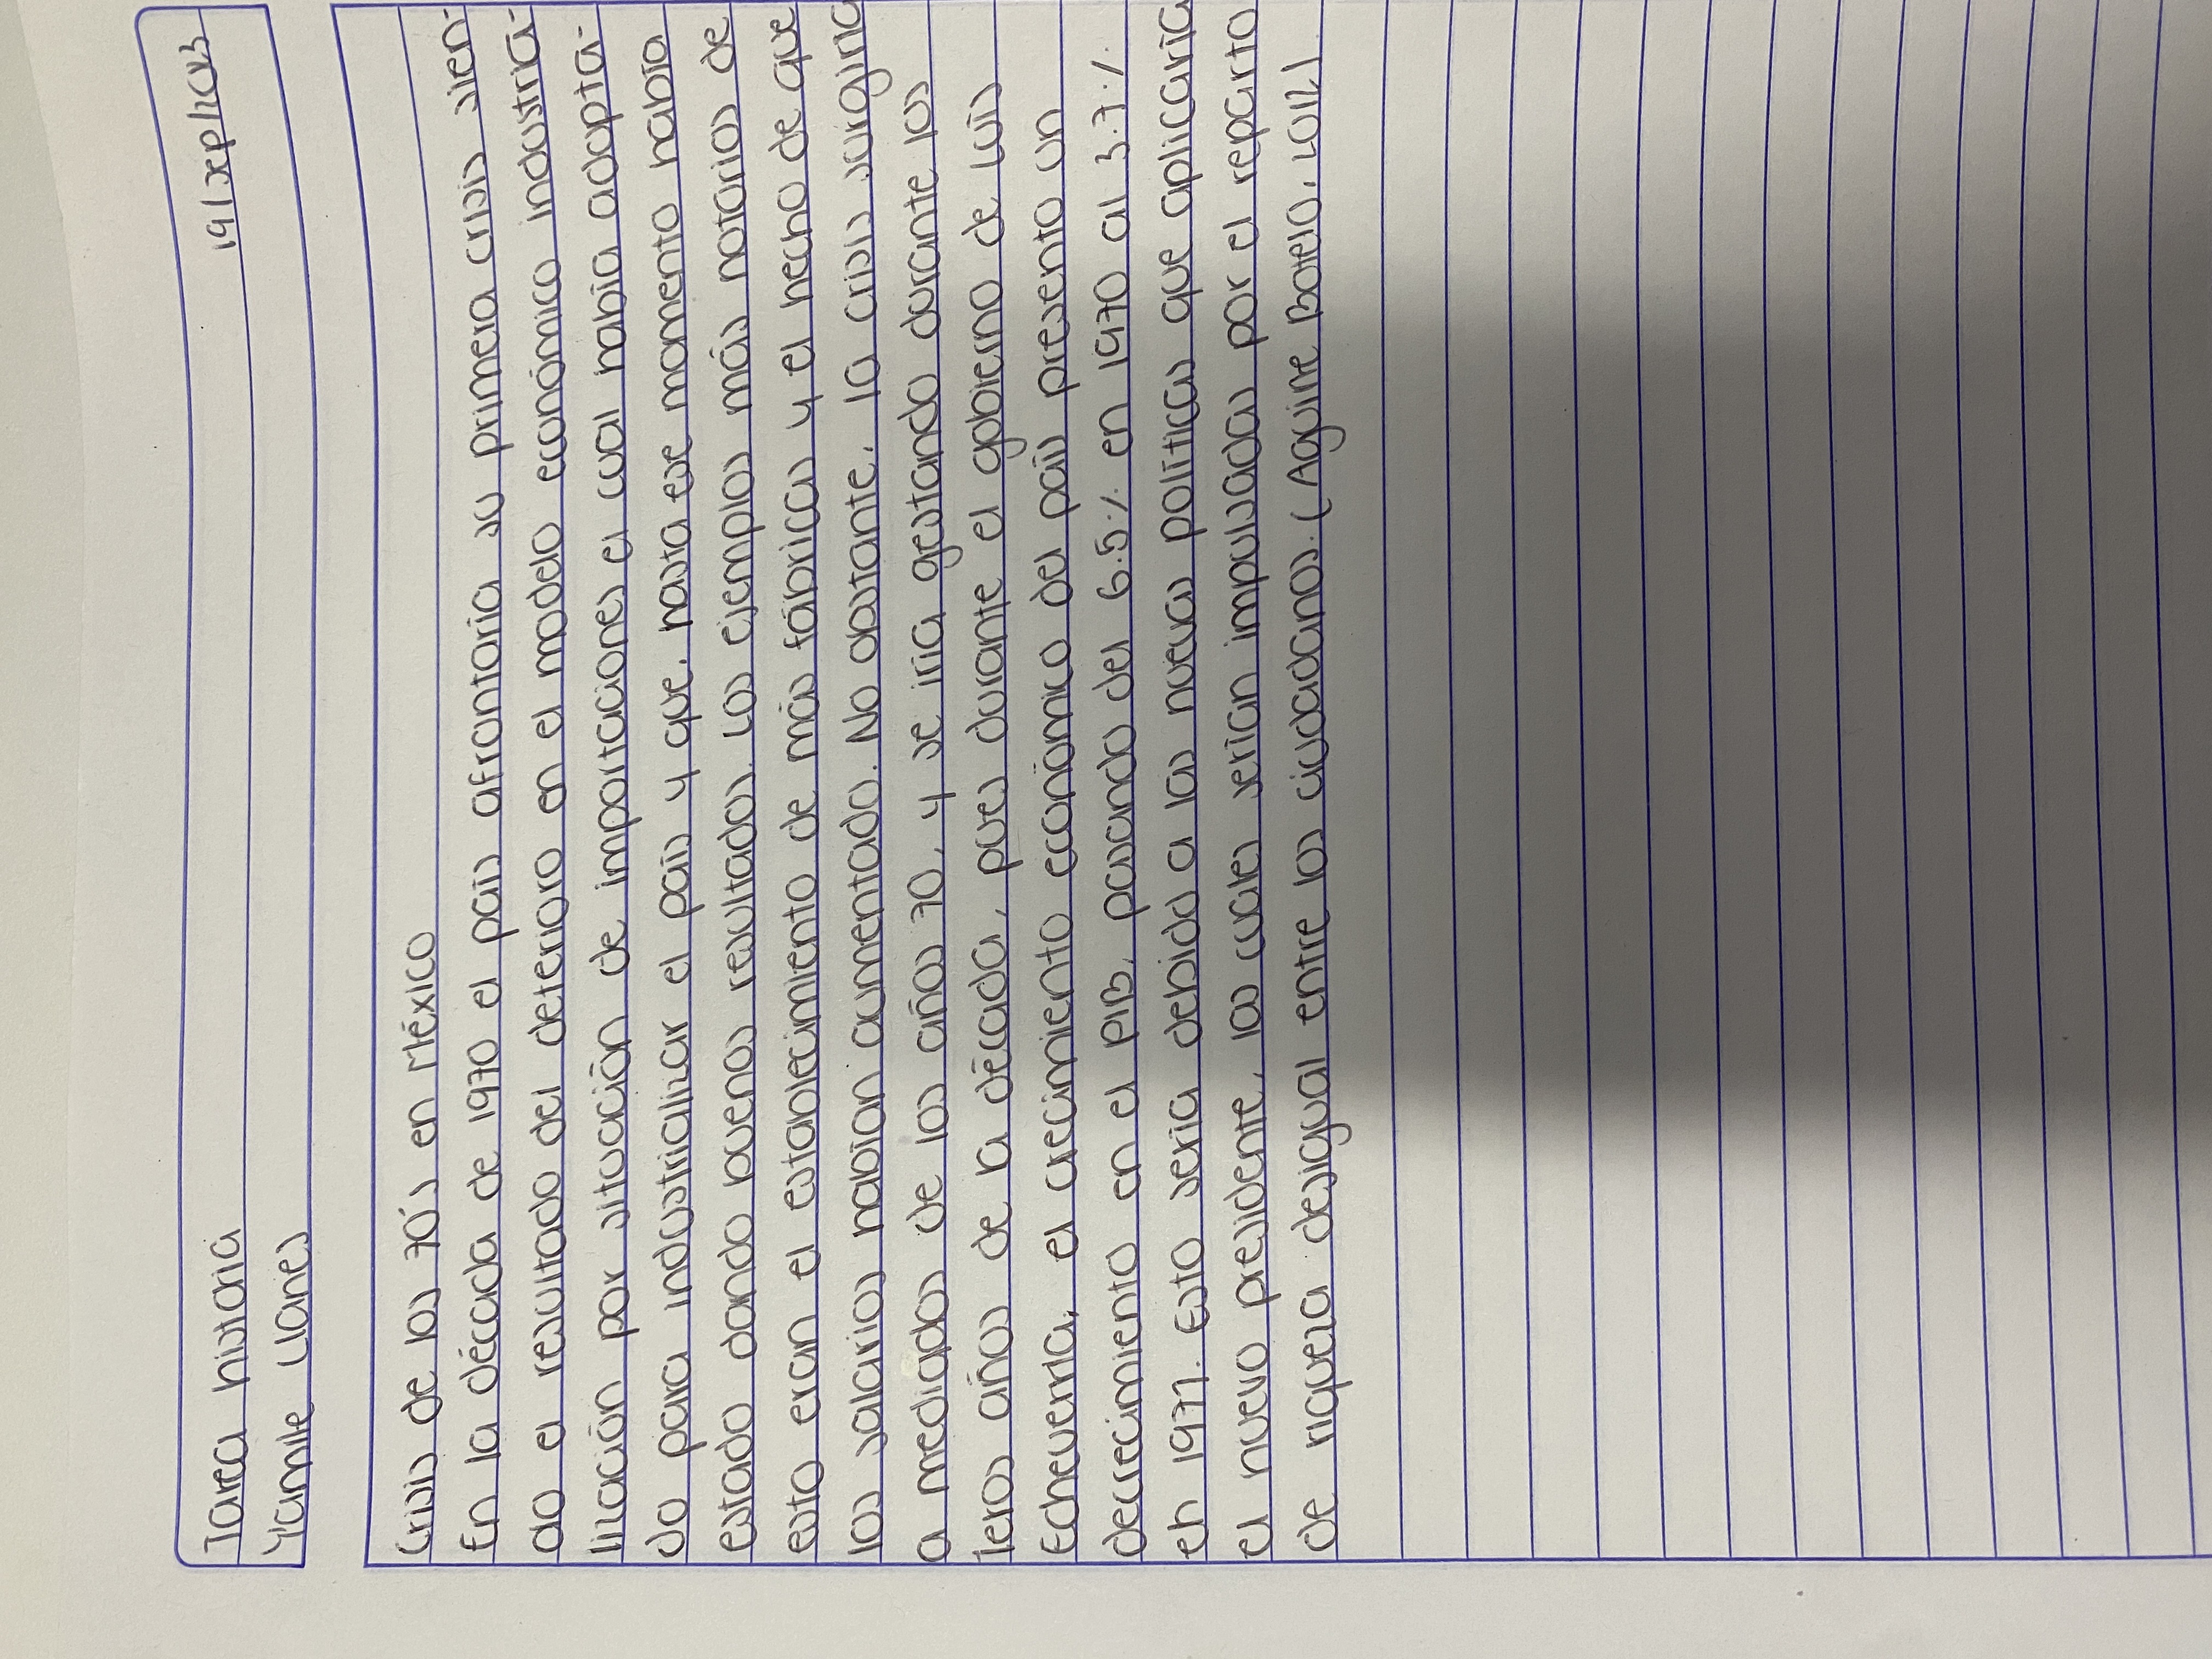 Tarea historia 19/sep/2023
Yamile Llanes
Crisis de los 70's en México
En la década de 1970 el país afrontaria su primera crisis sien-
do el resultado del deterioro en el modelo económico industria-
lización por situación de importaciones el cual había adapta-
do para industrializar el país y que, hasta ese momento había
estado dando buenos resultados. Los ejemplos más notarios de
esto eran el establecimiento de más fábricas y el hecho de que
los salarios habían aumentado. No obstante, la crisis surgiría
a mediados de los años 70, y se iria gestando durante los
 años de la década, pues durante el gobierno de Luis
Echeverría, el crecimiento económico del país presento un
decrecimiento en el PIB, pasando del 6.5% en 1970 al 3.7%
en 1977. Esto seria debido a las nuevas políticas que aplicaría
el nuevo presidente, las cuales serian impulsadas por el reparto
de riqueza desigual entre los ciudadanos. (Aguirre Botelo, 2012)